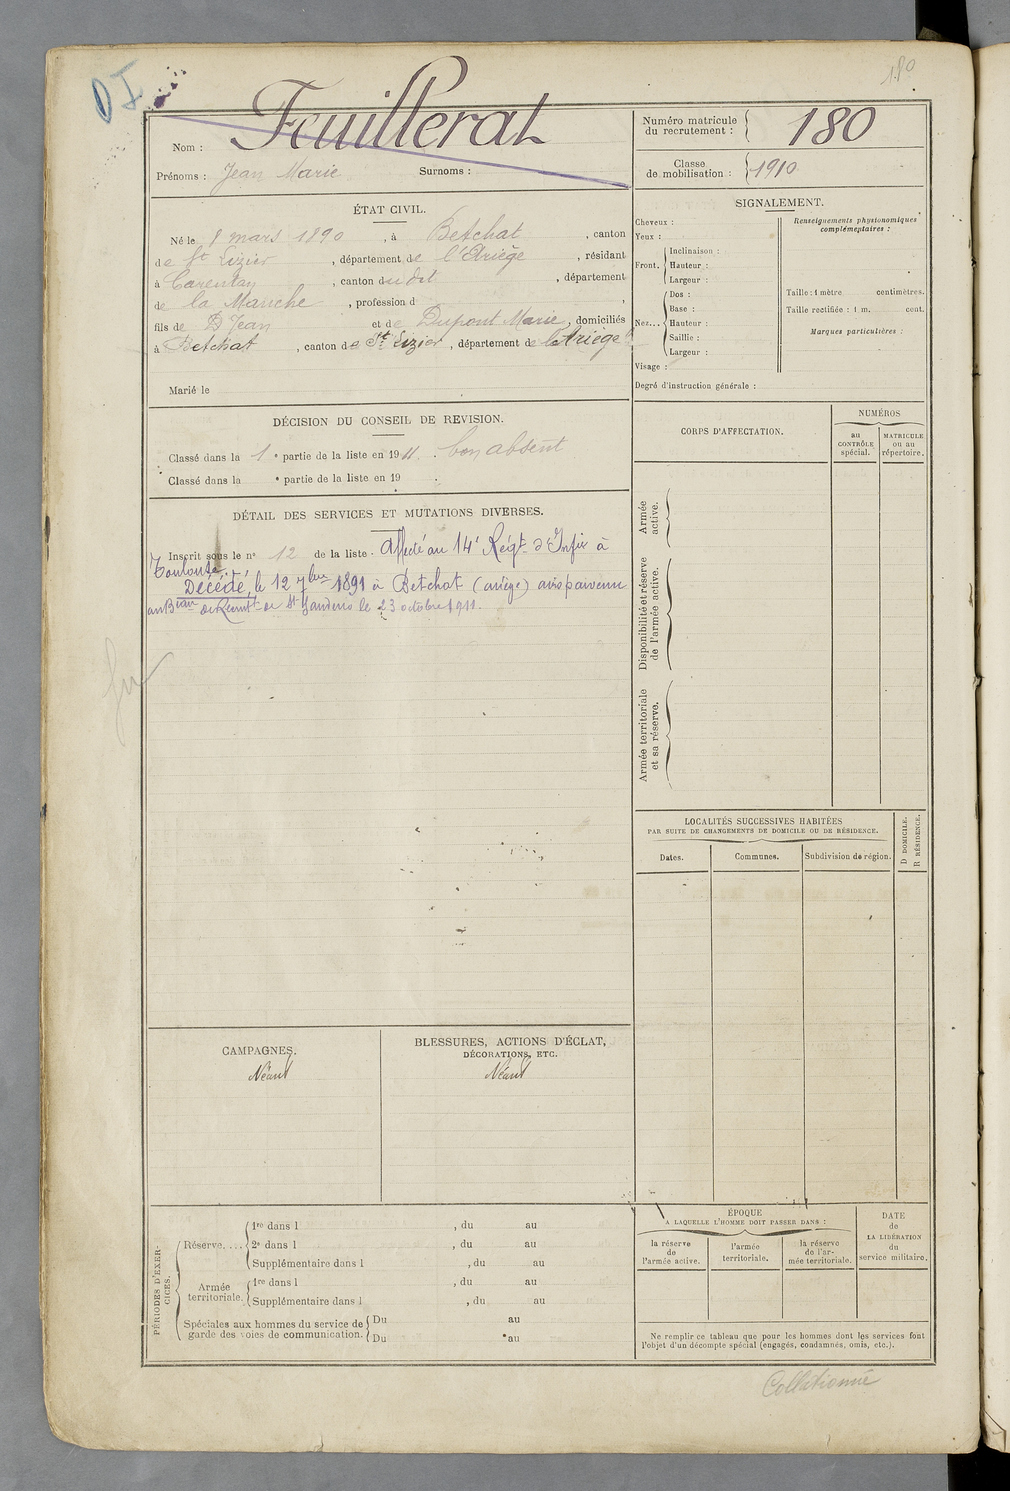 180
D I
Nom : Feuillerat
Prénoms : Jean Marie Surnoms :
Numéro matricule du recrutement : 180
Classe de mobilisation : 1910
ÉTAT CIVIL.
Né le 8 mars 1890, à Betchat, canton
de St Lizier, département de l'Ariège, résidant
à Carentan, canton du dit, département
de la Manche, profession d ,
fils de D Jean et de Dupont Marie, domiciliés
à Betchat, canton de St Lizier, département de l'Ariège
Marié le
DÉCISION DU CONSEIL DE REVISION.
Classé dans la 1e partie de la liste en 1911. bon absent
Classé dans la e partie de la liste en 19 .
DÉTAIL DES SERVICES ET MUTATIONS DIVERSES.
Inscrit sous le no 12 de la liste. Affecté au 14e Régt d'Infie à
Toulouse.
Décédé, le 12 7bre 1891 à Betchat (ariège) avis parvenu
au Beau de Recrutt de St Gaudens le 23 octobre 1911.
CAMPAGNES.
Néant
BLESSURES, ACTIONS D'ÉCLAT,
DÉCORATIONS, ETC.
Néant
PÉRIODES D'EXERCICES.
Réserve....
1re dans l , du au
2e dans l , du au
Supplémentaire dans l , du au
Armée territoriale.
1re dans l , du au
Supplémentaire dans l , du au
Spéciales aux hommes du service de garde des voies de communication.
Du au
Du au
SIGNALEMENT.
Cheveux :
Yeux :
Front.
Inclinaison :
Hauteur :
Largeur :
Nez...
Dos :
Base :
Hauteur :
Saillie :
Largeur :
Visage :
Renseignements physionomiques complémentaires :
Taille : 1 mètre centimètres.
Taille rectifiée : 1 m. cent.
Marques particulières :
Degré d'instruction générale :
CORPS D'AFFECTATION.
NUMÉROS
au CONTRÔLE spécial.
MATRICULE ou au répertoire.
Armée active.
Disponibilité et réserve de l'armée active.
Armée territoriale et sa réserve.
LOCALITÉS SUCCESSIVES HABITÉES
PAR SUITE DE CHANGEMENTS DE DOMICILE OU DE RÉSIDENCE.
Dates.
Communes.
Subdivision de région.
D DOMICILE.
R RÉSIDENCE.
ÉPOQUE
A LAQUELLE L'HOMME DOIT PASSER DANS :
la réserve de l'armée active.
l'armée territoriale.
la réserve de l'armée territoriale.
DATE
de
LA LIBÉRATION
du
service militaire.
Ne remplir ce tableau que pour les hommes dont les services font
l'objet d'un décompte spécial (engagés, condamnés, omis, etc.).
Collationné